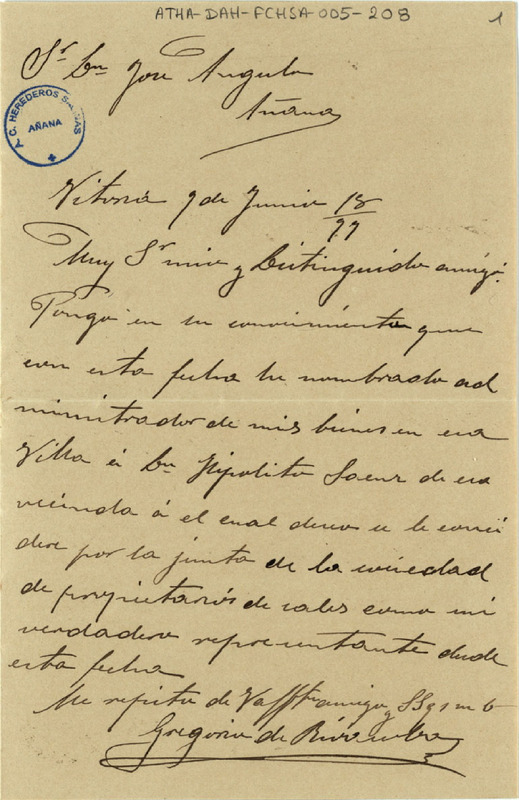 ATHA-DAH-FCHSA-005-208
1
Sr Dn José Angulo
Añana
C. HEREDEROS SALINAS
AÑANA
Vitoria 9 de Junio 18/97
Muy Sr mio y Distinguido amigo.
Pongo en su conocimiento que
con esta fecha he nombrado ad
ministrador de mis bienes en esa
Villa á Dn Hipolito Saenz de esa
vecindá á el cual deseo se le consi
dere por la junta de la sociedad
de propietarios de sales como mi
verdadero representante desde
esta fecha
Me repito de V afftmo amigo y SS q s m b
Gregorio de